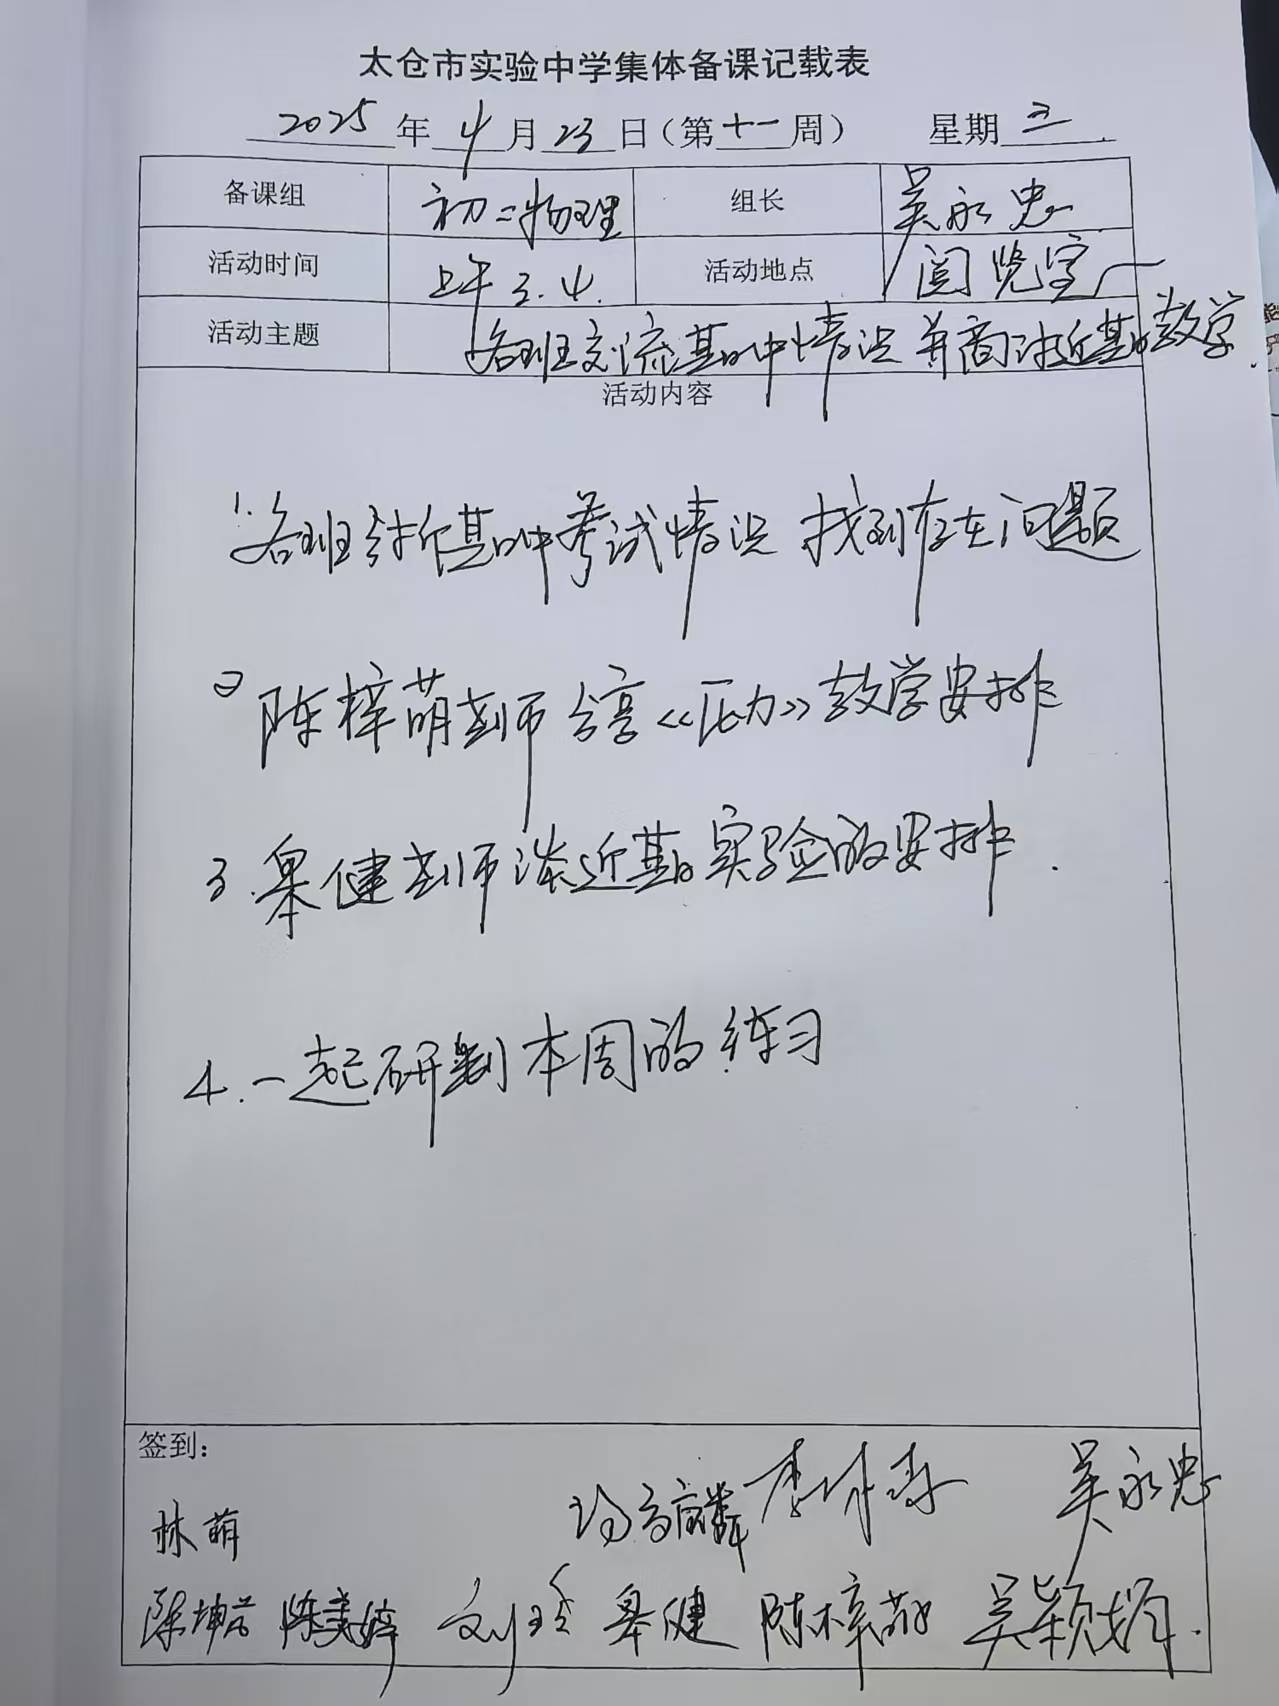 太仓市实验中学集体备课记载表
2025年4月23日（第十一周） 星期三
备课组 初二物理 组长 吴永忠
活动时间 上午3.4. 活动地点 阅览室
活动主题 各班交流期中情况并商讨近期教学.
活动内容
1.各班分析期中考试情况 找到存在问题
2 陈梓萌老师分享《压力》教学安排
3.皋健老师谈近期实验的安排.
4.一起研制本周的练习
签到：
林萌 吴永忠
刘玲 皋健 陈梓萌